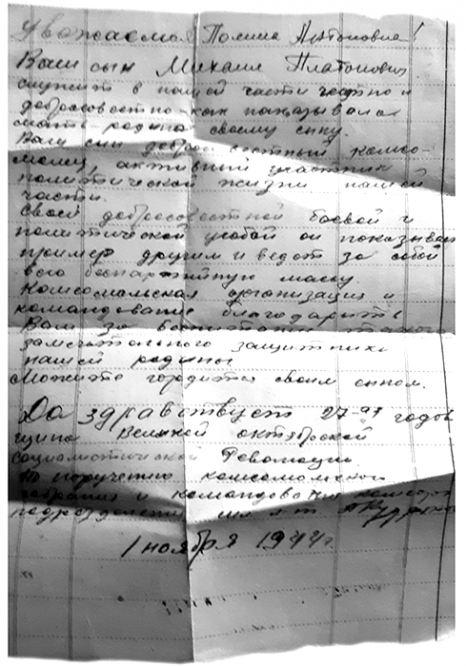 Уважаемая Полина Антоновна!
Ваш сын Михаил Платонович
служит в нашей части честно и
добросовестно как наказывала
мать-родина своему сыну.
Ваш сын добросовестный комсо-
молец, активный участник
политической жизни нашей
части.
Своей добросовестной боевой и
политической учебой он показывает
пример другим и ведет за собой
всю беспартийную массу.
Комсомольская организация и
командование благодарит
Вам за воспитание такого
замечательного защитника
нашей родины
Можите гордится своим сыном.
Да здравствует 27-ая годов
щина Великой октябрской
социалистической Революции.
По поручению комсомольского
собрания и командования комсорг
подразделения
1 ноября 1944г.